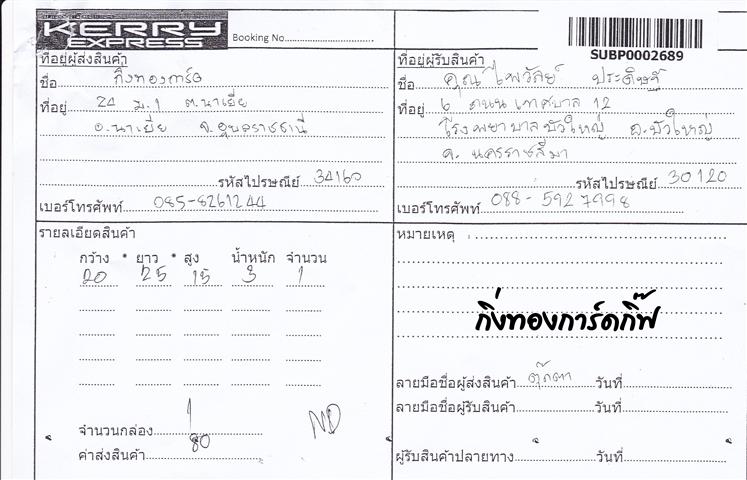 KERRY EXPRESS
Booking No.
SUBP0002689
ที่อยู่ผู้ส่งสินค้า
ชื่อ กิ่งทองการ์ด
ที่อยู่ 24 ม.1 ต.นาเยีย
อ.นาเยีย จ.อุบลราชธานี
รหัสไปรษณีย์ 34160
เบอร์โทรศัพท์ 085-8261244
ที่อยู่ผู้รับสินค้า
ชื่อ คุณ ไพวัลย์ ประดิษฐ์
ที่อยู่ 6 ถนน เทศบาล 12
โรงพยาบาลบัวใหญ่ อ.บัวใหญ่
จ. นครราชสีมา
รหัสไปรษณีย์ 30120
เบอร์โทรศัพท์ 088-5927998
รายละเอียดสินค้า
กว้าง * ยาว * สูง น้ำหนัก จำนวน
20 25 15 3 1
จำนวนกล่อง 1
ค่าส่งสินค้า 80
ND
หมายเหตุ :
กิ่งทองการ์ดกิ๊ฟ
ลายมือชื่อผู้ส่งสินค้า ตุ๊กตา วันที่
ลายมือชื่อผู้รับสินค้า วันที่
ผู้รับสินค้าปลายทาง วันที่